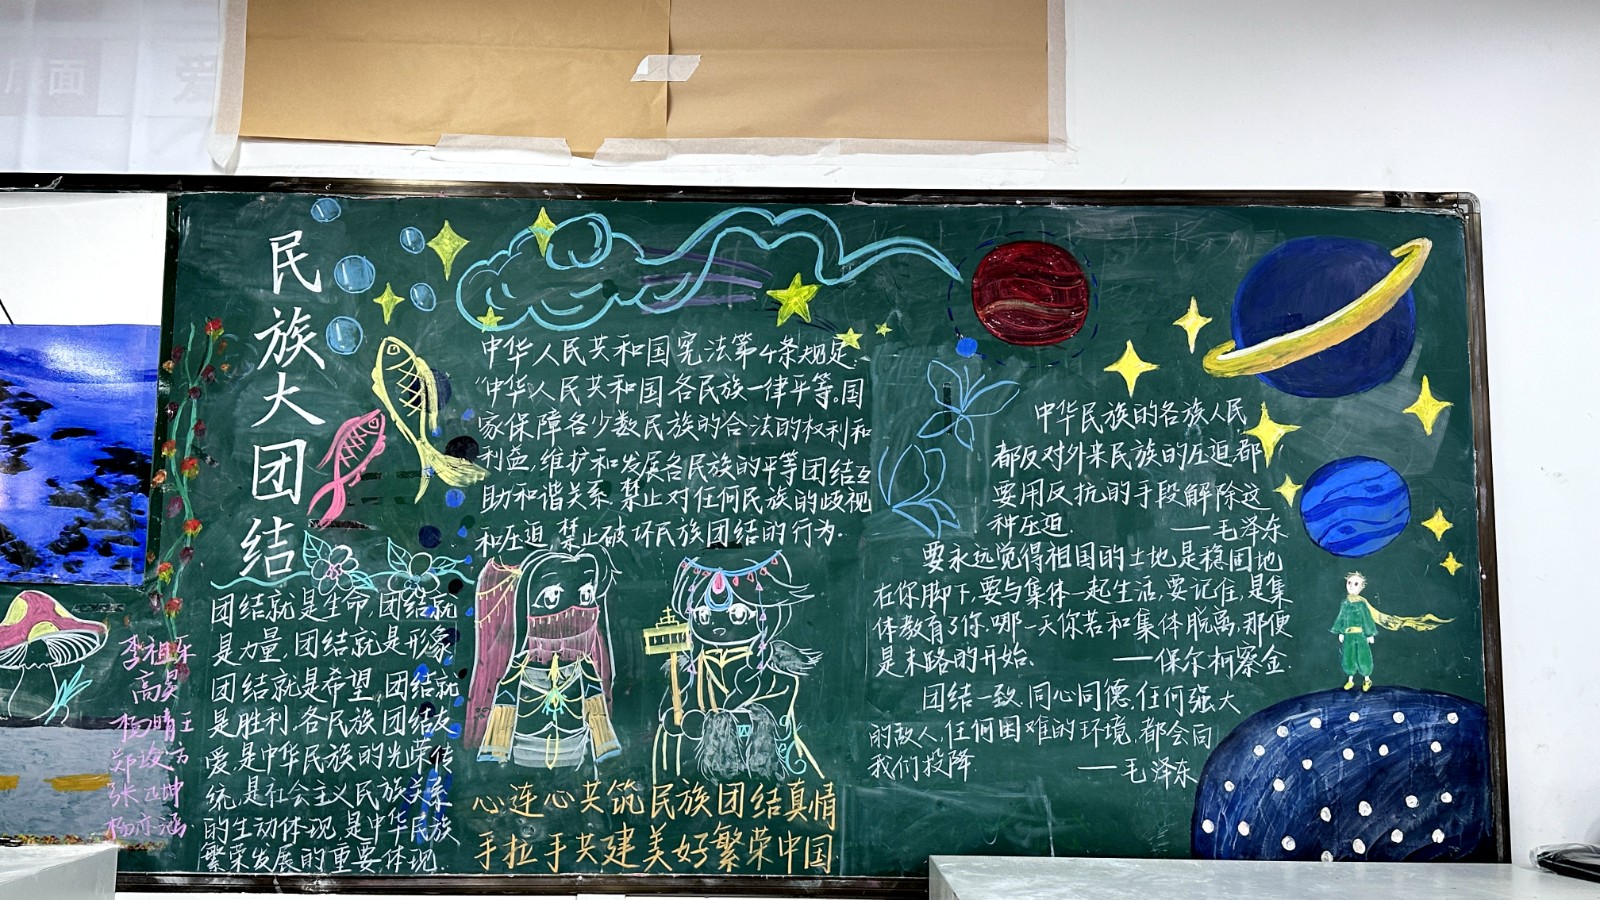 层面
爱
民族大团结
团结就是生命,团结就
是力量,团结就是形象
团结就是希望,团结就
是胜利.各民族团结友
爱,是中华民族的光荣传
统,是社会主义民族关系
的生动体现,是中华民族
繁荣发展的重要体现.
李祖乐
高昊
杨晴王
张正坤
杨亦涵
中华人民共和国宪法第4条规定:
“中华人民共和国各民族一律平等。国
家保障各少数民族的合法的权利和
利益,维护和发展各民族的平等团结互
助和谐关系.禁止对任何民族的歧视
和压迫,禁止破坏民族团结的行为.
心连心共筑民族团结真情
手拉手共建美好繁荣中国
中华民族的各族人民
都反对外来民族的压迫,都
要用反抗的手段解除这
种压迫.——毛泽东
要永远觉得祖国的土地是稳固地
在你脚下,要与集体一起生活,要记住,是集
体教育了你.哪一天你若和集体脱离,那便
是末路的开始、——保尔柯察金.
团结一致,同心同德,任何强大
的敌人,任何困难的环境,都会向
我们投降.——毛泽东